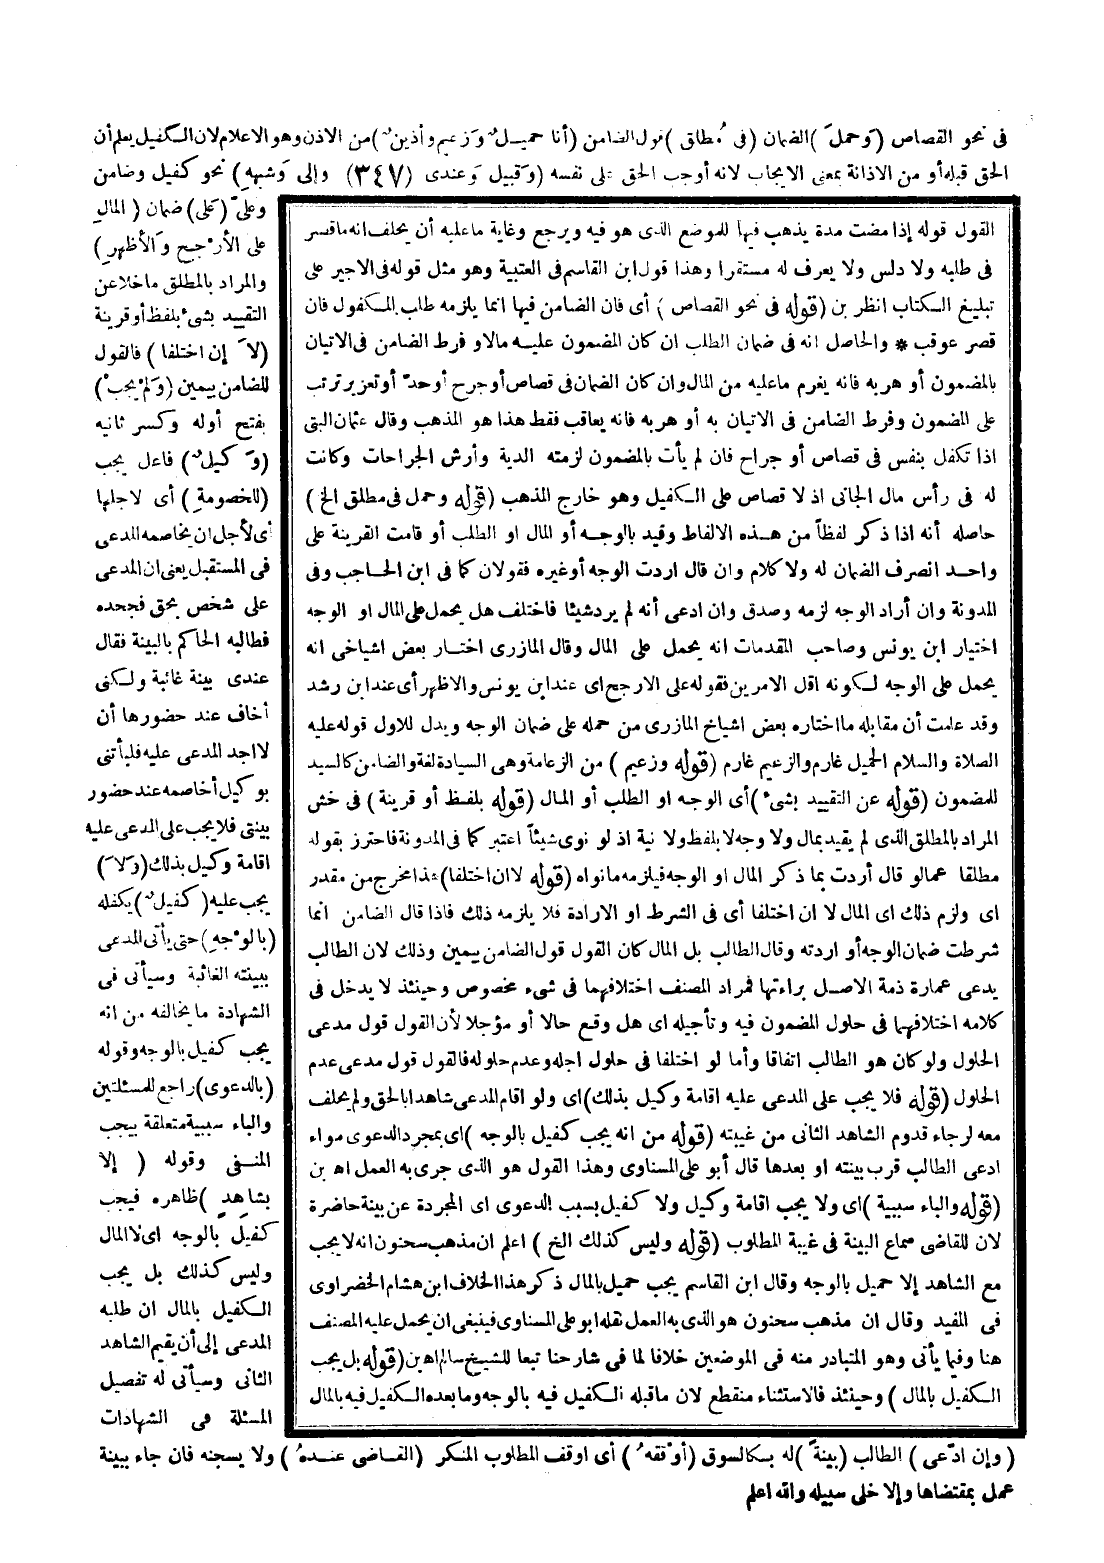 فى نحو القصاص (وَحمل َ) الضمان (فى مُطلق) قول الضامن (أنا حميلٌ وَزعيم وأذين ٌ) من الاذن وهو الاعلام لان الكفيل يعلم أن
الحق قبله أو من الاذانة بمعنى الايجاب لانه أوجب الحق على نفسه (وَقبيل وَعندى (٣٤٧) وإلى وَشبههِ) نحو كفيل وضامن
وعلىّ (على) ضمان (المالِ
على الأرْجحِ وَالأظهرِ)
والمراد بالمطلق ما خلا عن
التقييد بشىء بلفظ أو قرينة
(لاَ إن اختلفا) فالقول
للضامن بيمين (وَلمْ يجبْ)
بفتح أوله وكسر ثانيه
(وَكيلٌ) فاعل يجب
(للخصومةِ) أى لاجلها
أى لأجل ان يخاصمه المدعى
فى المستقبل يعنى ان المدعى
على شخص بحق فجحده
فطالبه الحاكم بالبينة فقال
عندى بينة غائبة ولكنى
أخاف عند حضورها أن
لا اجد المدعى عليه فليأتنى
بوكيل أخاصمه عند حضور
بينتى فلا يجب على المدعى عليه
اقامة وكيل بذلك (وَلاَ)
يجب عليه (كفيلٌ) يكفله
(بالوجهِ) حتى يأتى المدعى
ببينته الغائبة وسيأتى فى
الشهادة ما يخالفه من انه
يجب كفيل بالوجه وقوله
(بالدعوى) راجع للمسئلتين
والباء سببية متعلقة بيجب
المنفى وقوله (إلا
بشاهدٍ) ظاهره فيجب
كفيل بالوجه اى لا المال
وليس كذلك بل يجب
الكفيل بالمال ان طلبه
المدعى إلى أن يقيم الشاهد
الثانى وسيأتى له تفصيل
المسئلة فى الشهادات
القول قوله إذا مضت مدة يذهب فيها للموضع الذى هو فيه ويرجع وغاية ما عليه أن يحلف انه ما قصر
فى طلبه ولا دلس ولا يعرف له مستقرا وهذا قول ابن القاسم فى العتبية وهو مثل قوله فى الاجير على
تبليغ الكتاب انظر بن (قوله فى نحو القصاص) أى فان الضامن فيها انما يلزمه طلب المكفول فان
قصر عوقب * والحاصل انه فى ضمان الطلب ان كان المضمون عليه مالا وفرط الضامن فى الاتيان
بالمضمون أو هربه فانه يغرم ما عليه من المال وان كان الضمان فى قصاص أو جرح أو حدّ أو تعزير ترتب
على المضمون وفرط الضامن فى الاتيان به أو هربه فانه يعاقب فقط هذا هو المذهب وقال عثمان البتى
اذا تكفل بنفس فى قصاص أو جراح فان لم يأت بالمضمون لزمته الدية وأرش الجراحات وكانت
له فى رأس مال الجانى اذ لا قصاص على الكفيل وهو خارج المذهب (قوله وحمل فى مطلق الخ)
حاصله أنه اذا ذكر لفظاً من هذه الالفاظ وقيد بالوجه أو المال او الطلب أو قامت القرينة على
واحد انصرف الضمان له ولا كلام وان قال اردت الوجه أو غيره فقولان كما فى ابن الحاجب وفى
المدونة وان أراد الوجه لزمه وصدق وان ادعى أنه لم يرد شيئا فاختلف هل يحمل على المال او الوجه
اختيار ابن يونس وصاحب المقدمات انه يحمل على المال وقال المازرى اختار بعض اشياخى انه
يحمل على الوجه لكونه اقل الامرين فقوله على الارجح اى عند ابن يونس والاظهر أى عند ابن رشد
وقد علمت أن مقابله ما اختاره بعض اشياخ المازرى من حمله على ضمان الوجه ويدل للاول قوله عليه
الصلاة والسلام الحميل غارم والزعيم غارم (قوله وزعيم) من الزعامة وهى السيادة لغة والضامن كالسيد
للمضمون (قوله عن التقييد بشىء) أى الوجه او الطلب أو المال (قوله بلفظ أو قرينة) فى خش
المراد بالمطلق الذى لم يقيد بمال ولا وجه لا بلفظ ولا نية اذ لو نوى شيئاً اعتبر كما فى المدونة فاحترز بقوله
مطلقا عما لو قال أردت بما ذكر المال او الوجه فيلزمه ما نواه (قوله لا ان اختلفا) هذا مخرج من مقدر
اى ولزم ذلك اى المال لا ان اختلفا أى فى الشرط او الارادة فلا يلزمه ذلك فاذا قال الضامن انما
شرطت ضمان الوجه أو اردته وقال الطالب بل المال كان القول قول الضامن بيمين وذلك لان الطالب
يدعى عمارة ذمة الاصل براءتها فمراد المصنف اختلافهما فى شىء مخصوص وحينئذ لا يدخل فى
كلامه اختلافهما فى حلول المضمون فيه وتأجيله اى هل وقع حالا أو مؤجلا لأن القول قول مدعى
الحلول ولو كان هو الطالب اتفاقا وأما لو اختلفا فى حلول اجله وعدم حلوله فالقول قول مدعى عدم
الحلول (قوله فلا يجب على المدعى عليه اقامة وكيل بذلك) اى ولو اقام المدعى شاهدا بالحق ولم يحلف
معه لرجاء قدوم الشاهد الثانى من غيبته (قوله من انه يجب كفيل بالوجه) اى بمجرد الدعوى سواء
ادعى الطالب قرب بينته او بعدها قال أبو على المسناوى وهذا القول هو الذى جرى به العمل اه بن
(قوله والباء سببية) اى ولا يجب اقامة وكيل ولا كفيل بسبب الدعوى اى المجردة عن بينة حاضرة
لان للقاضى سماع البينة فى غيبة المطلوب (قوله وليس كذلك الخ) اعلم ان مذهب سحنون انه لا يجب
مع الشاهد إلا حميل بالوجه وقال ابن القاسم يجب حميل بالمال ذكر هذا الخلاف ابن هشام الخضراوى
فى المفيد وقال ان مذهب سحنون هو الذى به العمل نقله ابو على المسناوى فينبغى ان يحمل عليه المصنف
هنا وفيما يأتى وهو المتبادر منه فى الموضعين خلافا لما فى شارحنا تبعا للشيخ سالم اه بن (قوله بل يجب
الكفيل بالمال) وحينئذ فالاستثناء منقطع لان ماقبله الكفيل فيه بالوجه وما بعده الكفيل فيه بالمال
(وإن ادّعى) الطالب (بينةً) له بكالسوق (أوْقفهُ) أى اوقف المطلوب المنكر (القاضى عندهُ) ولا يسجنه فان جاء ببينة
عمل بمقتضاها وإلا خلى سبيله والله اعلم